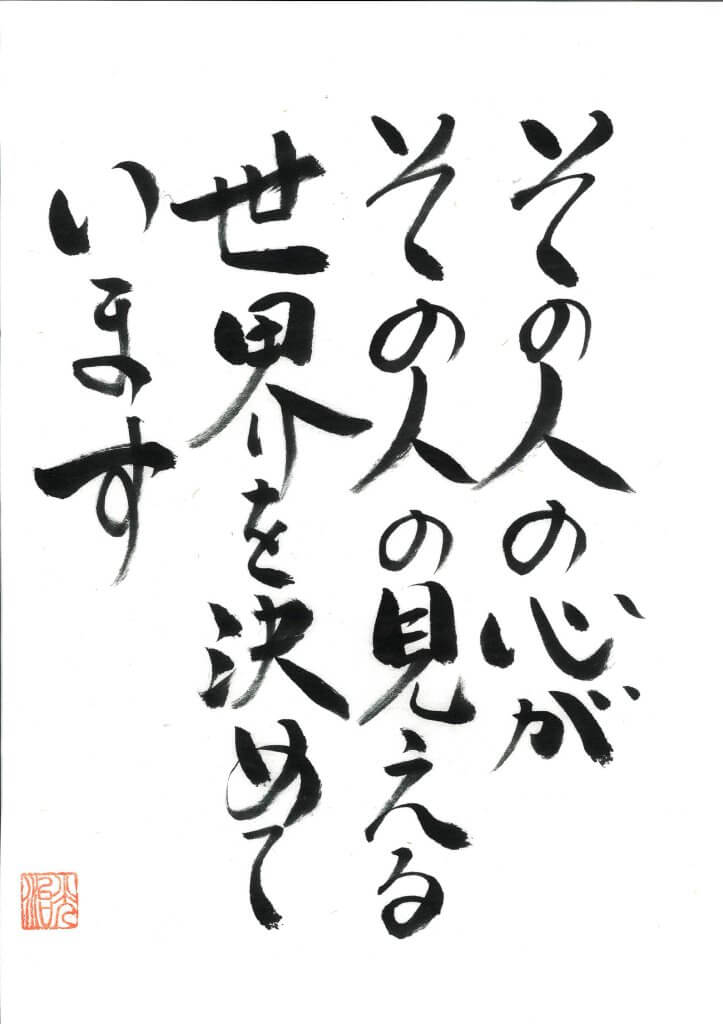 その人の心が
その人の見える
世界を決めて
います